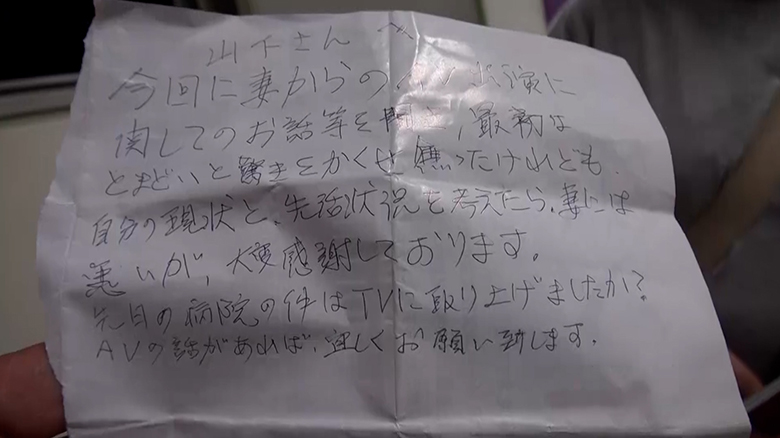 山下さんへ
今回に妻からのAV出演に
関してのお話等を聞き、最初は
とまどいと驚きをかくせ無ったけれども、
自分の現状と、先活状況を考えたら、妻には
悪いが、大変感謝しております。
先日の病院の件はTVに取り上げましたか?
AVの話があれば、宜しくお願い致します。